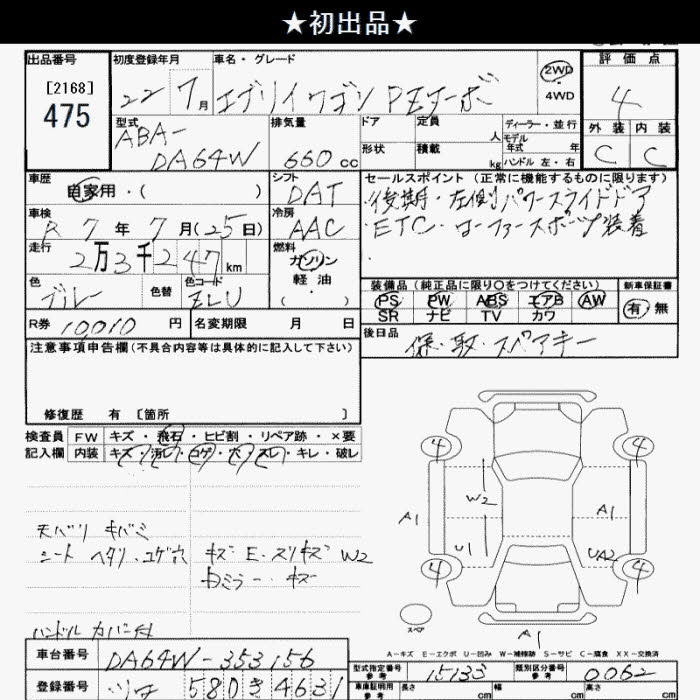 ★初出品★
出品番号
[2168]
475
初度登録年月
22 7月
車名・グレード
エブリイワゴン PZターボ
2WD
・
4WD
評価点
4
外装 内装
C C
型式
ABA-
DA64W
排気量
660cc
ドア
形状
定員
人
積載
kg
ディーラー・並行
モデル
年式 年
ハンドル 左・右
車歴
自家用・( )
シフト
DAT
車検
R 7年 7月(25日)
冷房
AAC
走行
2万3千247km
燃料
ガソリン
軽油
・( )
色
ブルー
色替
色コード
ZLU
R券 10010円
名変期限 月 日
セールスポイント(正常に機能するものに限ります)
・後期・左側パワースライドドア
・ETC・ローファースポーツ装着
・
装備品(純正品に限り○をつけてください)
PS PW ABS エアB AW
SR ナビ TV カワ
新車保証書
有・無
後日品
保・取・スペアキー
注意事項申告欄(不具合内容等は具体的に記入して下さい)
修復歴 有 [箇所 ]
検査員
記入欄
FW キズ・飛石・ヒビ割・リペア跡・×要
内装 キズ・汚レ・コゲ・穴・スレ・キレ・破レ
天バリ キバミ
シート ヘタリ、コゲ穴
キズ E・スリキズ W2
ミラー キズ
ハンドル カバー付
4 4
W2
A1 A1
U1 UA2
4 4
スペア
A1
A-キズ E-エクボ U-凹み W-補修跡 S-サビ C-腐食 XX-交換済
車台番号 DA64W-353156
登録番号 580 き 4631
型式指定番号
参考
15133
類別区分番号
参考
0062
車庫証明用
参考
長さ cm 幅 cm 高さ cm